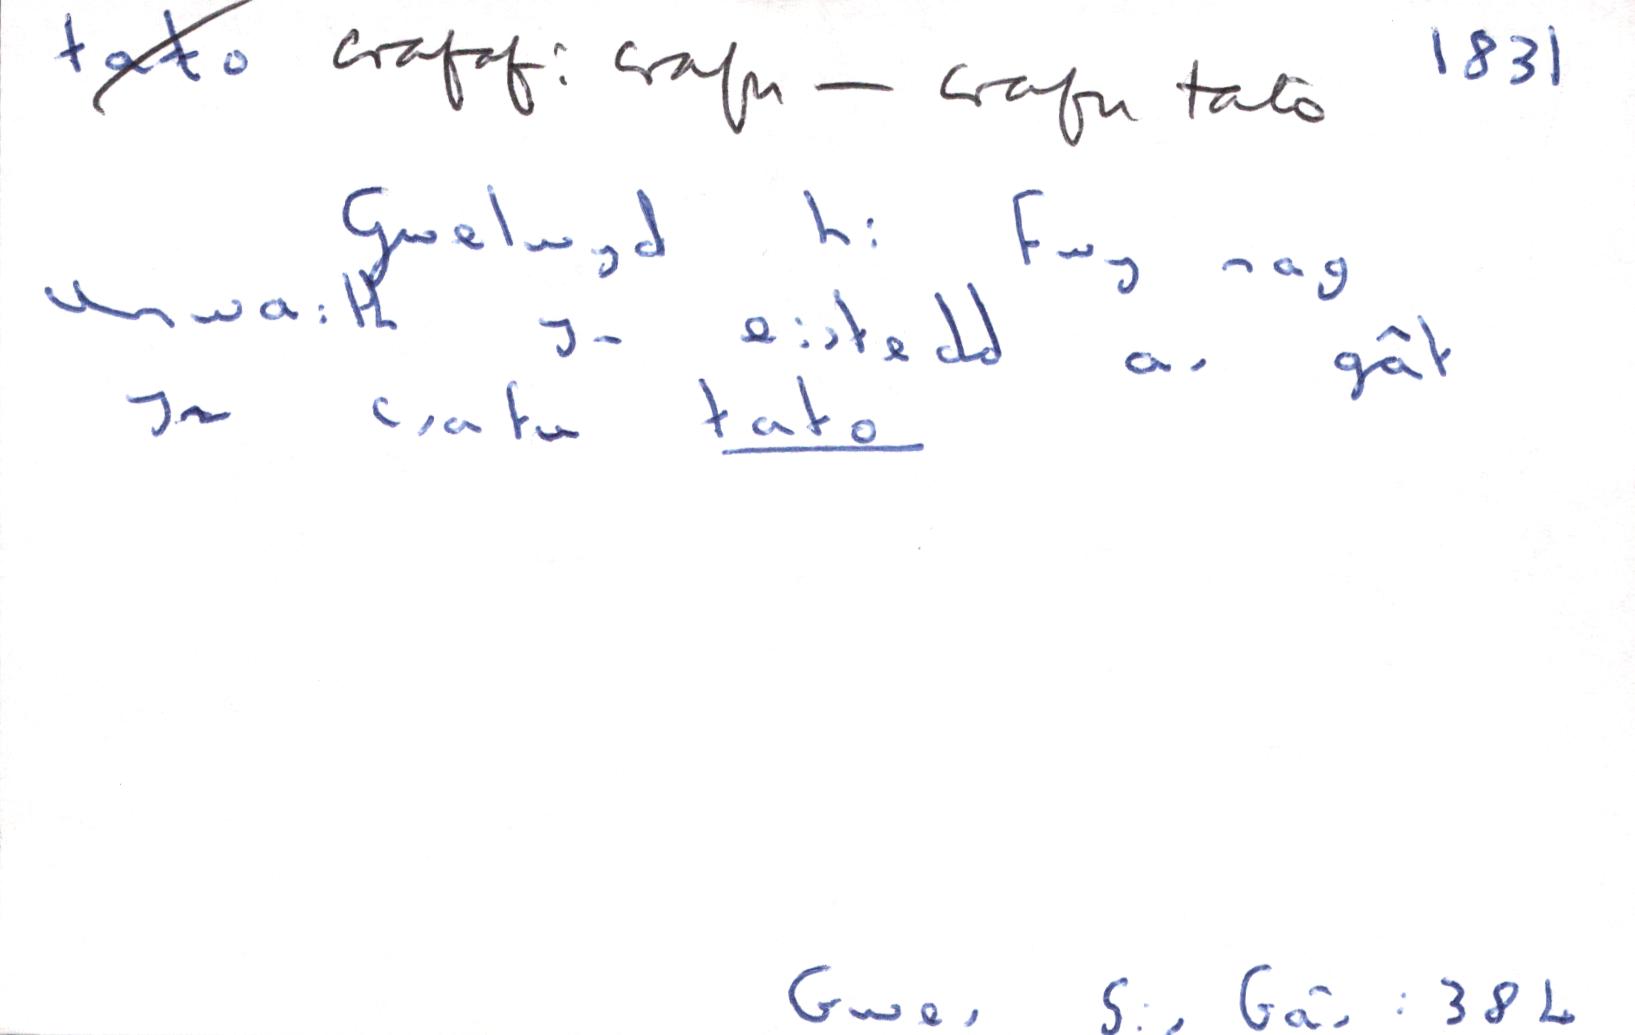 tato craff: crafu — crafu tato 1831
Gwelwyd hi Fwy nag
unwaith yn eistedd ar gât
yn crafu tato
Gwe, Sir Gâr : 384